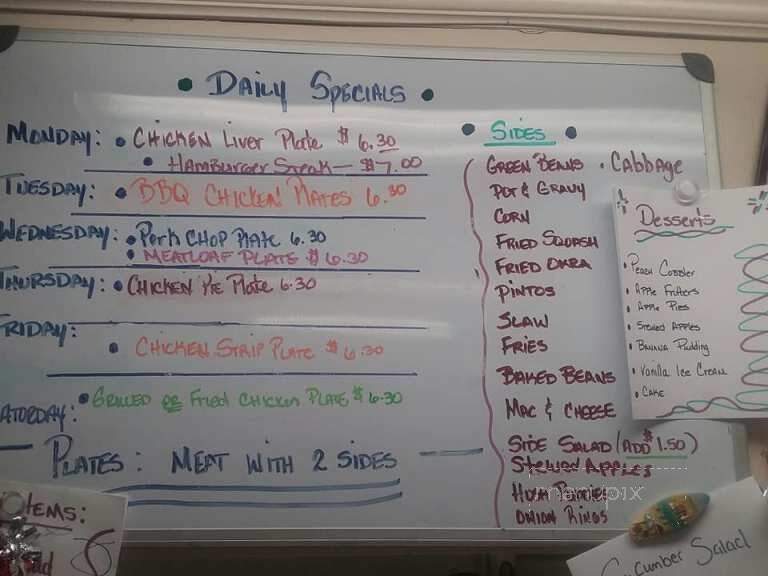 • Daily Specials •
Monday: • Chicken Liver Plate $ 6.30
• Hamburger Steak — $7.00
Tuesday: • BBQ Chicken Plates 6.30
Wednesday: • Pork Chop Plate 6.30
• Meatloaf Plate $ 6.30
Thursday: • Chicken Pie Plate 6.30
Friday:
• Chicken Strip Plate $ 6.30
aturday: • Grilled or Fried Chicken Plate $ 6.30
Plates: Meat with 2 Sides
• Sides •
Green Beans • Cabbage
Pot & Gravy
Corn
Fried Squash
Fried Okra
Pintos
Slaw
Fries
Baked Beans
Mac & Cheese
Side Salad (Add $1.50)
Stewed Apples
Hush Puppies
Onion Rings
Desserts
• Peach Cobbler
• Apple Fritters
• Apple Pies
• Stewed Apples
• Banana Pudding
• Vanilla Ice Cream
• Cake
tems:
cumber Salad
menupix